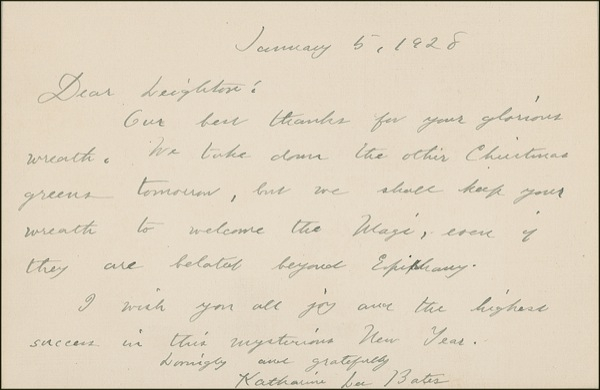 January 5, 1928
Dear Leighton:
Our best thanks for your glorious
wreath. We take down the other Christmas
greens tomorrow, but we shall keep your
wreath to welcome the Magi, even if
they are belated beyond Epiphany.
I wish you all joy and the highest
success in this mysterious New Year.
Lovingly and gratefully
Katharine Lee Bates